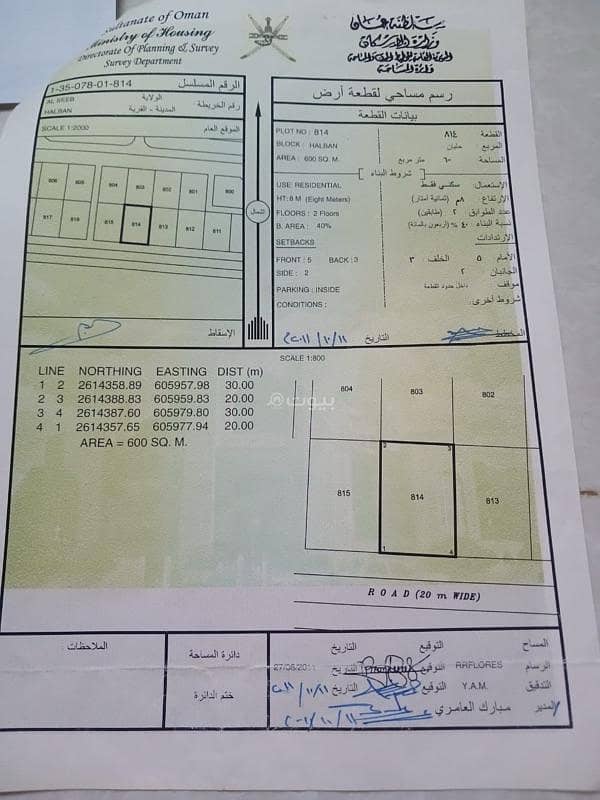 Sultanate of Oman
Ministry of Housing
Directorate Of Planning & Survey
Survey Department
سلطنة عمان
وزارة الإسكان
1-35-078-01-814
الرقم المسلسل
AL SEEB
الولاية
HALBAN
المدينة - القرية
رقم الخريطة
SCALE 1:2000
الموقع العام
806
805
804
803
802
801
800
817
816
815
814
813
812
811
الشمال
الإسقاط
رسم مساحي لقطعة أرض
بيانات القطعة
PLOT NO : 814
٨١٤
القطعة
BLOCK : HALBAN
حلبان
المربع
AREA : 600 SQ. M.
متر مربع
المساحة
شروط البناء
USE RESIDENTIAL
سكني فقط
الإستعمال:
HT: 8 M (Eight Meters)
٨م (ثمانية أمتار)
الإرتفاع:
FLOORS : 2 Floors
٢ (طابقين)
عدد الطوابق
B. AREA : 40%
٤٠ % (أربعون بالمائة)
نسبة البناء
SETBACKS
الإرتدادات
FRONT : 5 BACK : 3
الأمام ٥ الخلف ٣
SIDE : 2
الجانبان ٢
PARKING : INSIDE
داخل حدود القطعة
موقف
CONDITIONS :
شروط أخرى:
المخطط
التاريخ
٢٠١١/١٠/١١
SCALE 1:800
LINE NORTHING EASTING DIST (m)
1 2 2614358.89 605957.98 30.00
2 3 2614388.83 605959.83 20.00
3 4 2614387.60 605979.80 30.00
4 1 2614357.65 605977.94 20.00
AREA = 600 SQ. M.
بيوت
804
803
802
2
3
815
814
813
1
4
ROAD (20 m WIDE)
الملاحظات:
دائرة المساحة
ختم الدائرة
المساح
التوقيع
التاريخ
الرسام
RRFLORES
التوقيع
التاريخ
27/06/2011
التدقيق
Y.A.M.
التوقيع
التاريخ
٢٠١١/١٠/١١
المدير
مبارك العامري
٢٠١١/١٠/١١